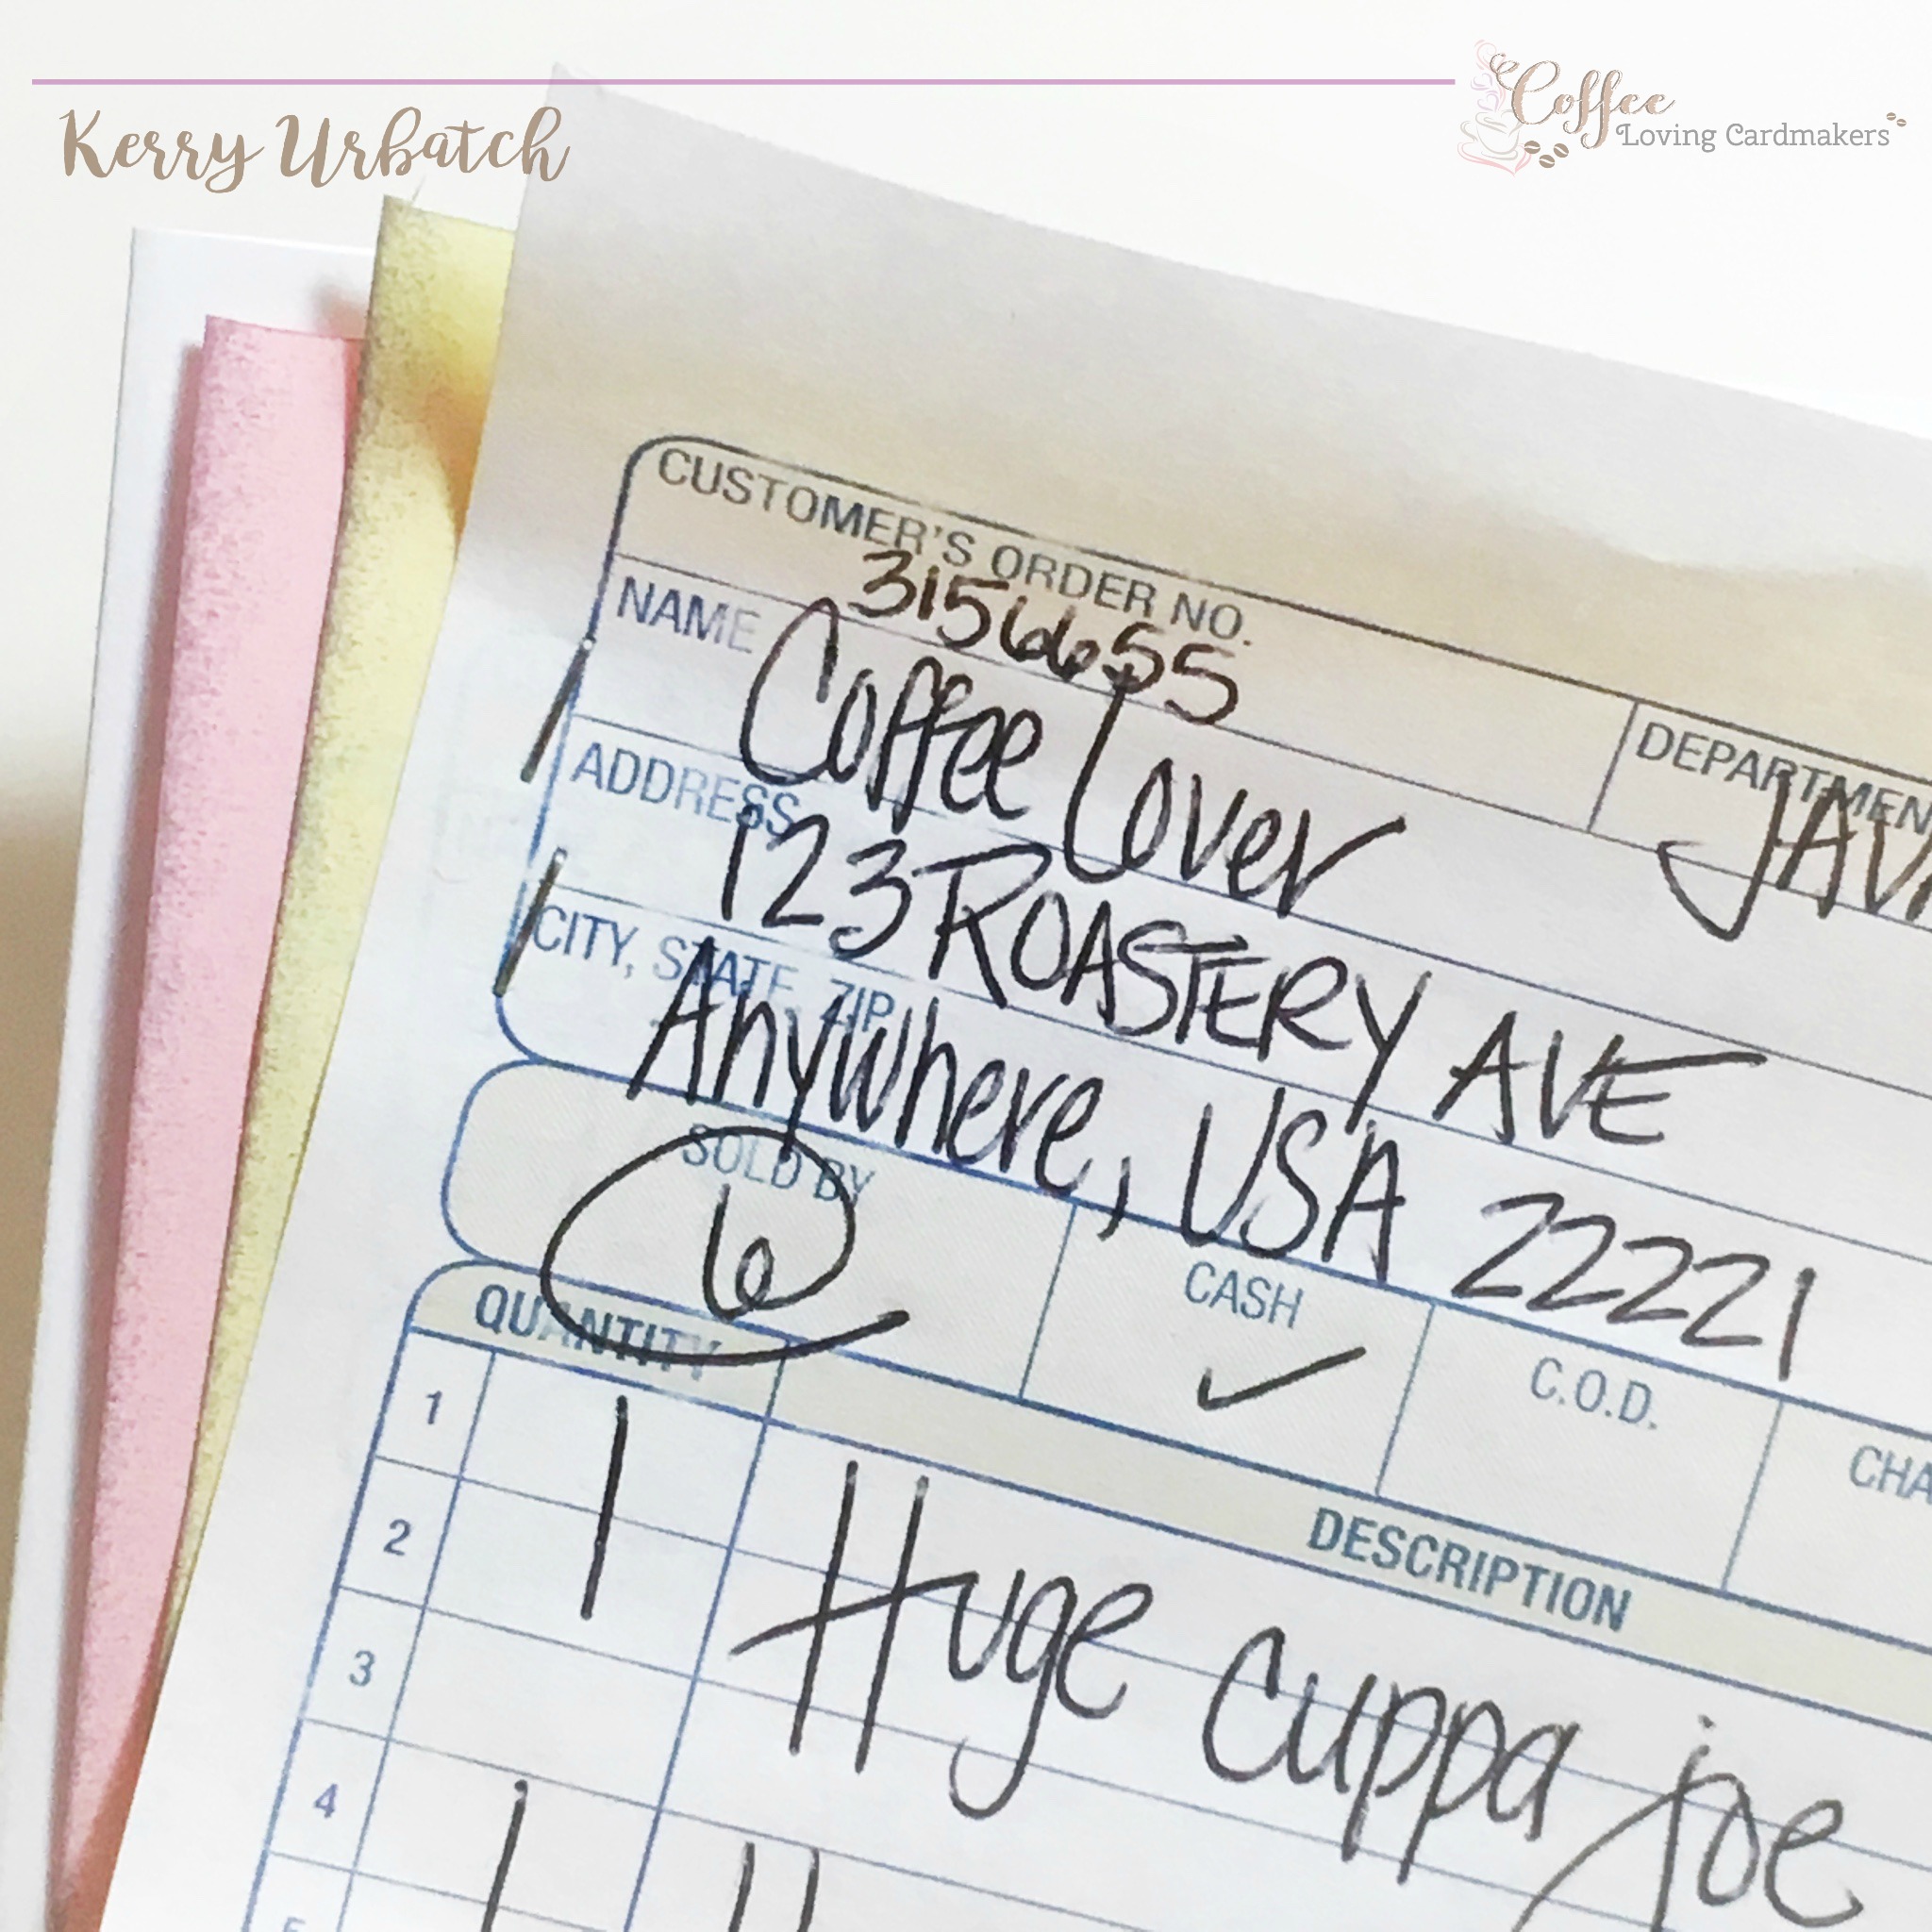 Kerry Urbatch
Coffee
Loving Cardmakers
CUSTOMER'S ORDER NO.
3156655
DEPARTMEN
JAVA
NAME
Coffee Lover
ADDRESS
123 ROASTERY AVE
CITY, STATE, ZIP
Anywhere, USA 22221
SOLD BY
6
CASH
✓
C.O.D.
CHA
QUANTITY
DESCRIPTION
1
1 Huge cuppa joe
2
3
4
1
5